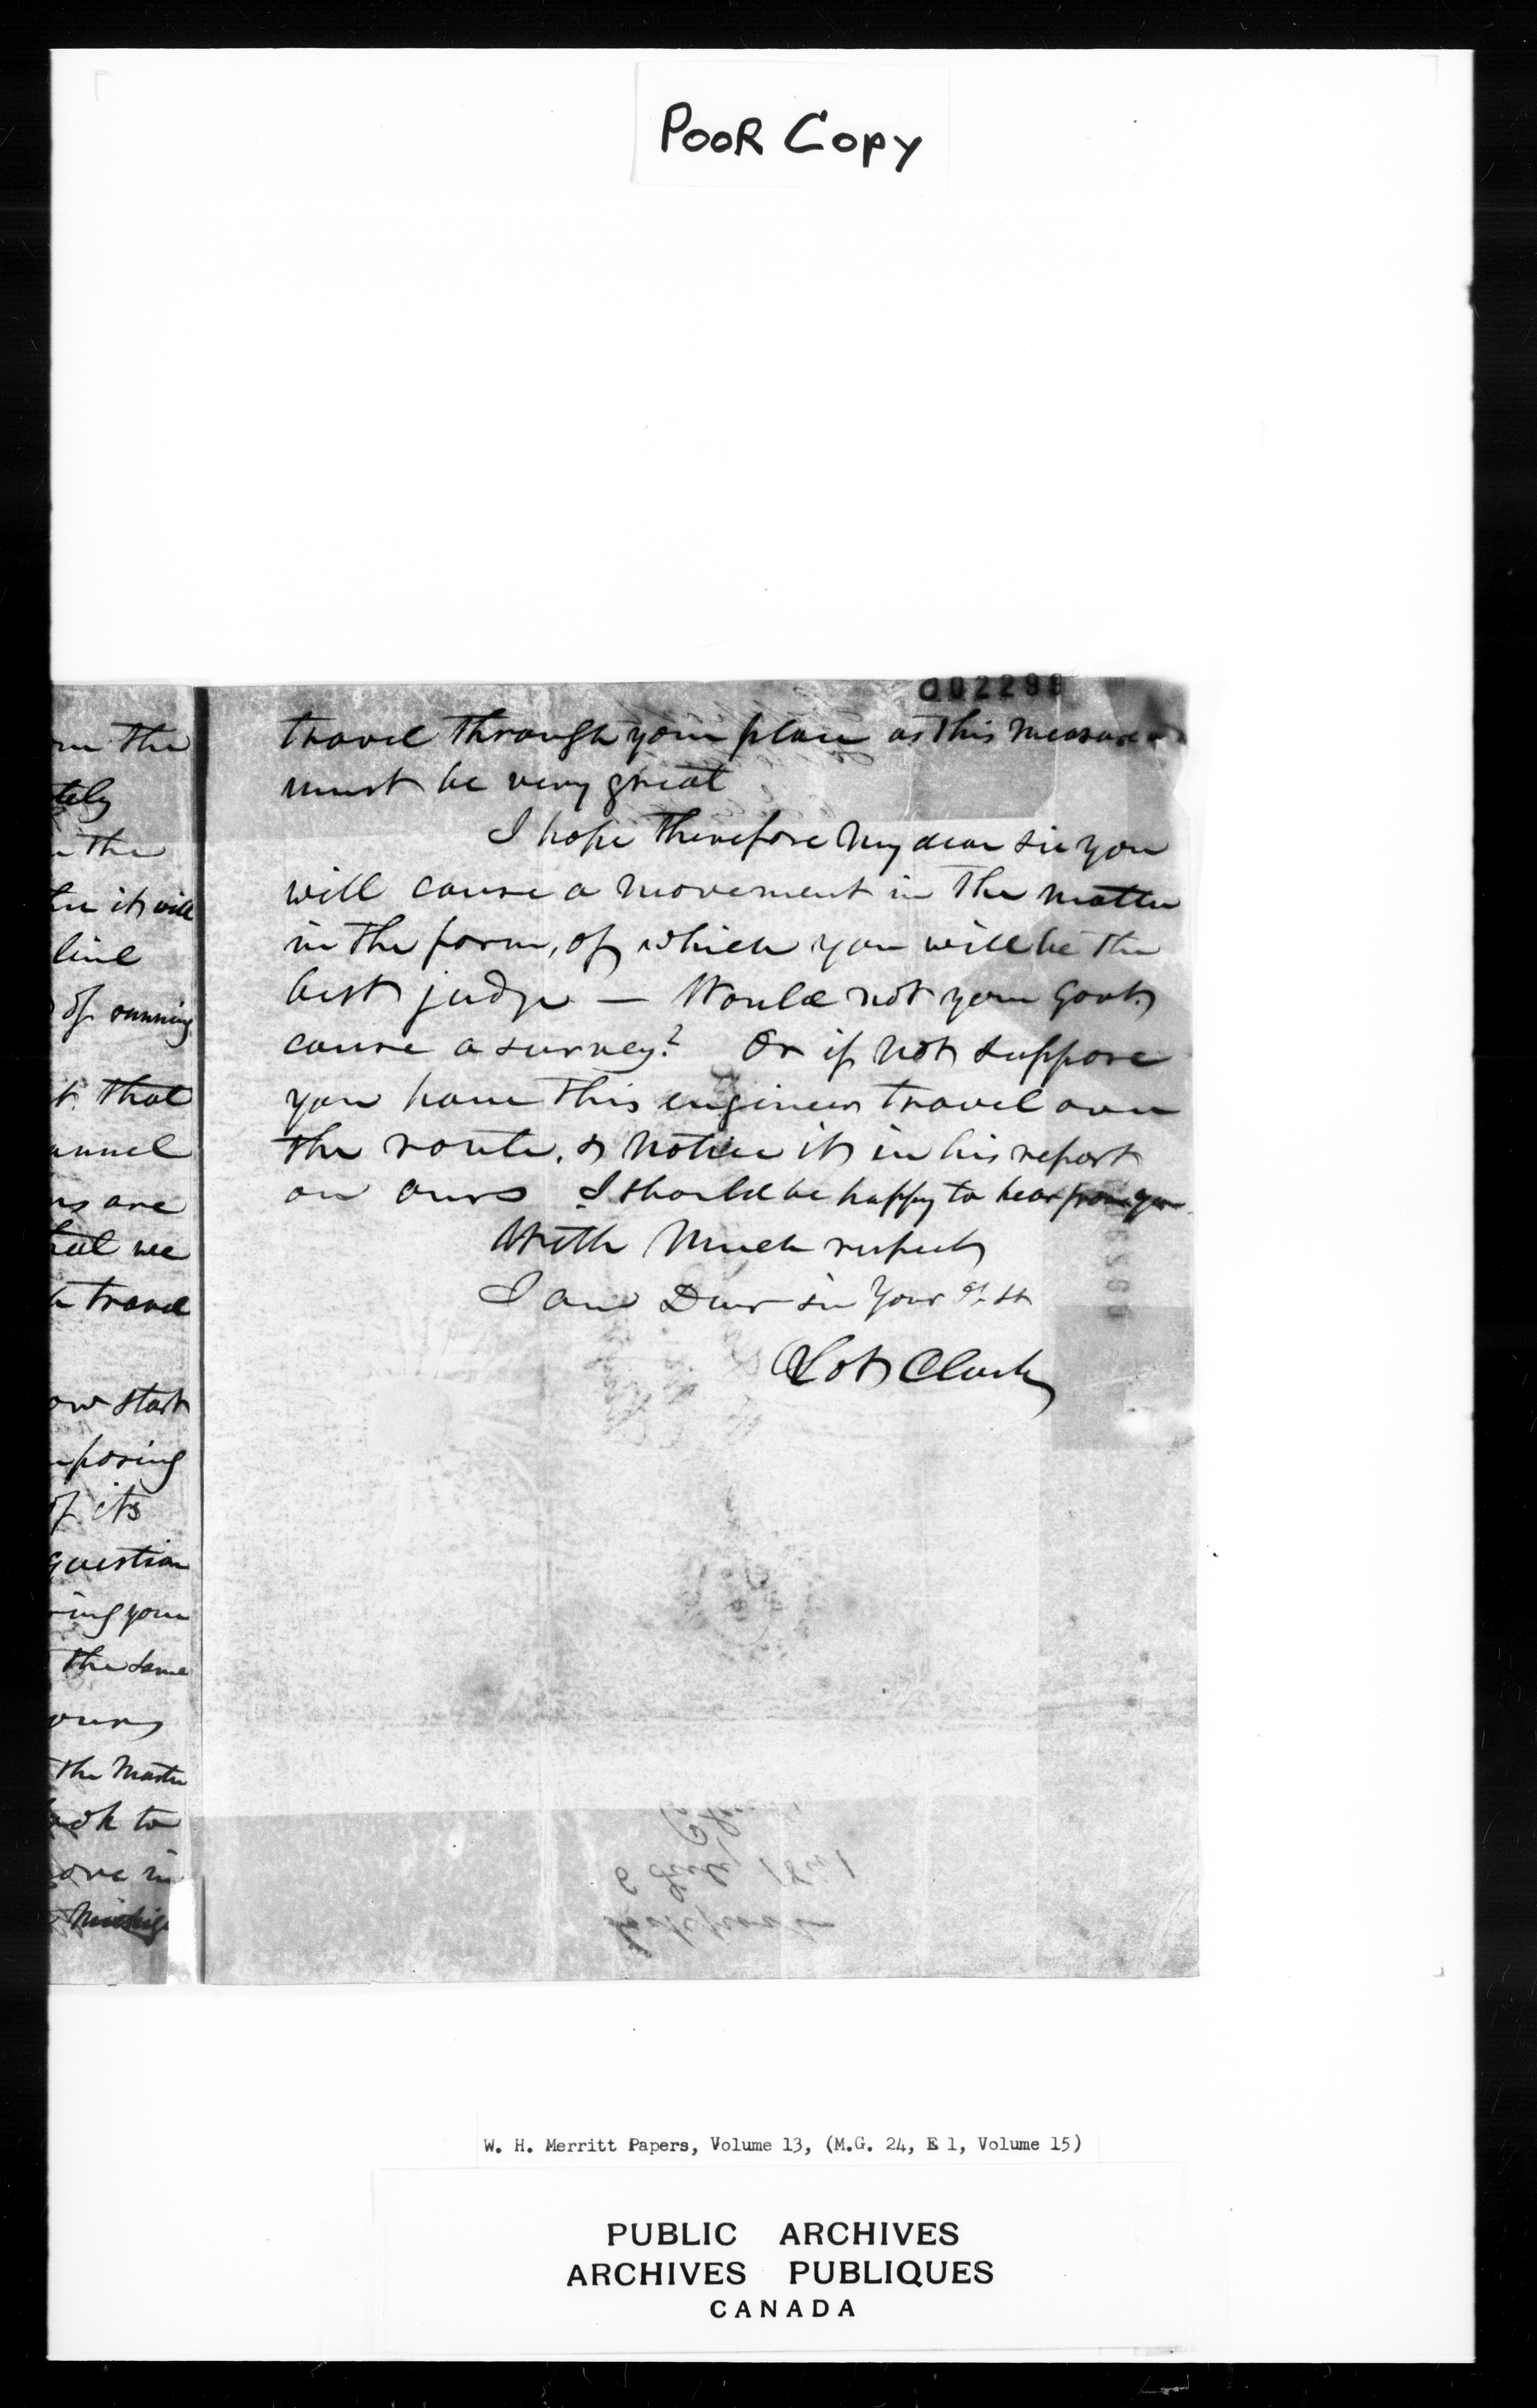 POOR COPY
002298
travel through your place as this measure
must be very great
I hope therefore my dear sir you
will cause a movement in the matter
in the form, of which you will be the
best judge — Would not your Govt
cause a survey? Or if not suppose
you have this engineer travel over
the route, & notice it in his report
on ours I should be happy to hear from you
With much respect
I am Dear sir Your
Lot Clark
the
tely
the
it will
line
of running
that
unnel
are
we
travel
start
posing
of its
question
ing your
the same
ours
the matter
ok to
ove in
6 July 1841
Lockport
W. H. Merritt Papers, Volume 13, (M.G. 24, E 1, Volume 15)
PUBLIC ARCHIVES
ARCHIVES PUBLIQUES
CANADA